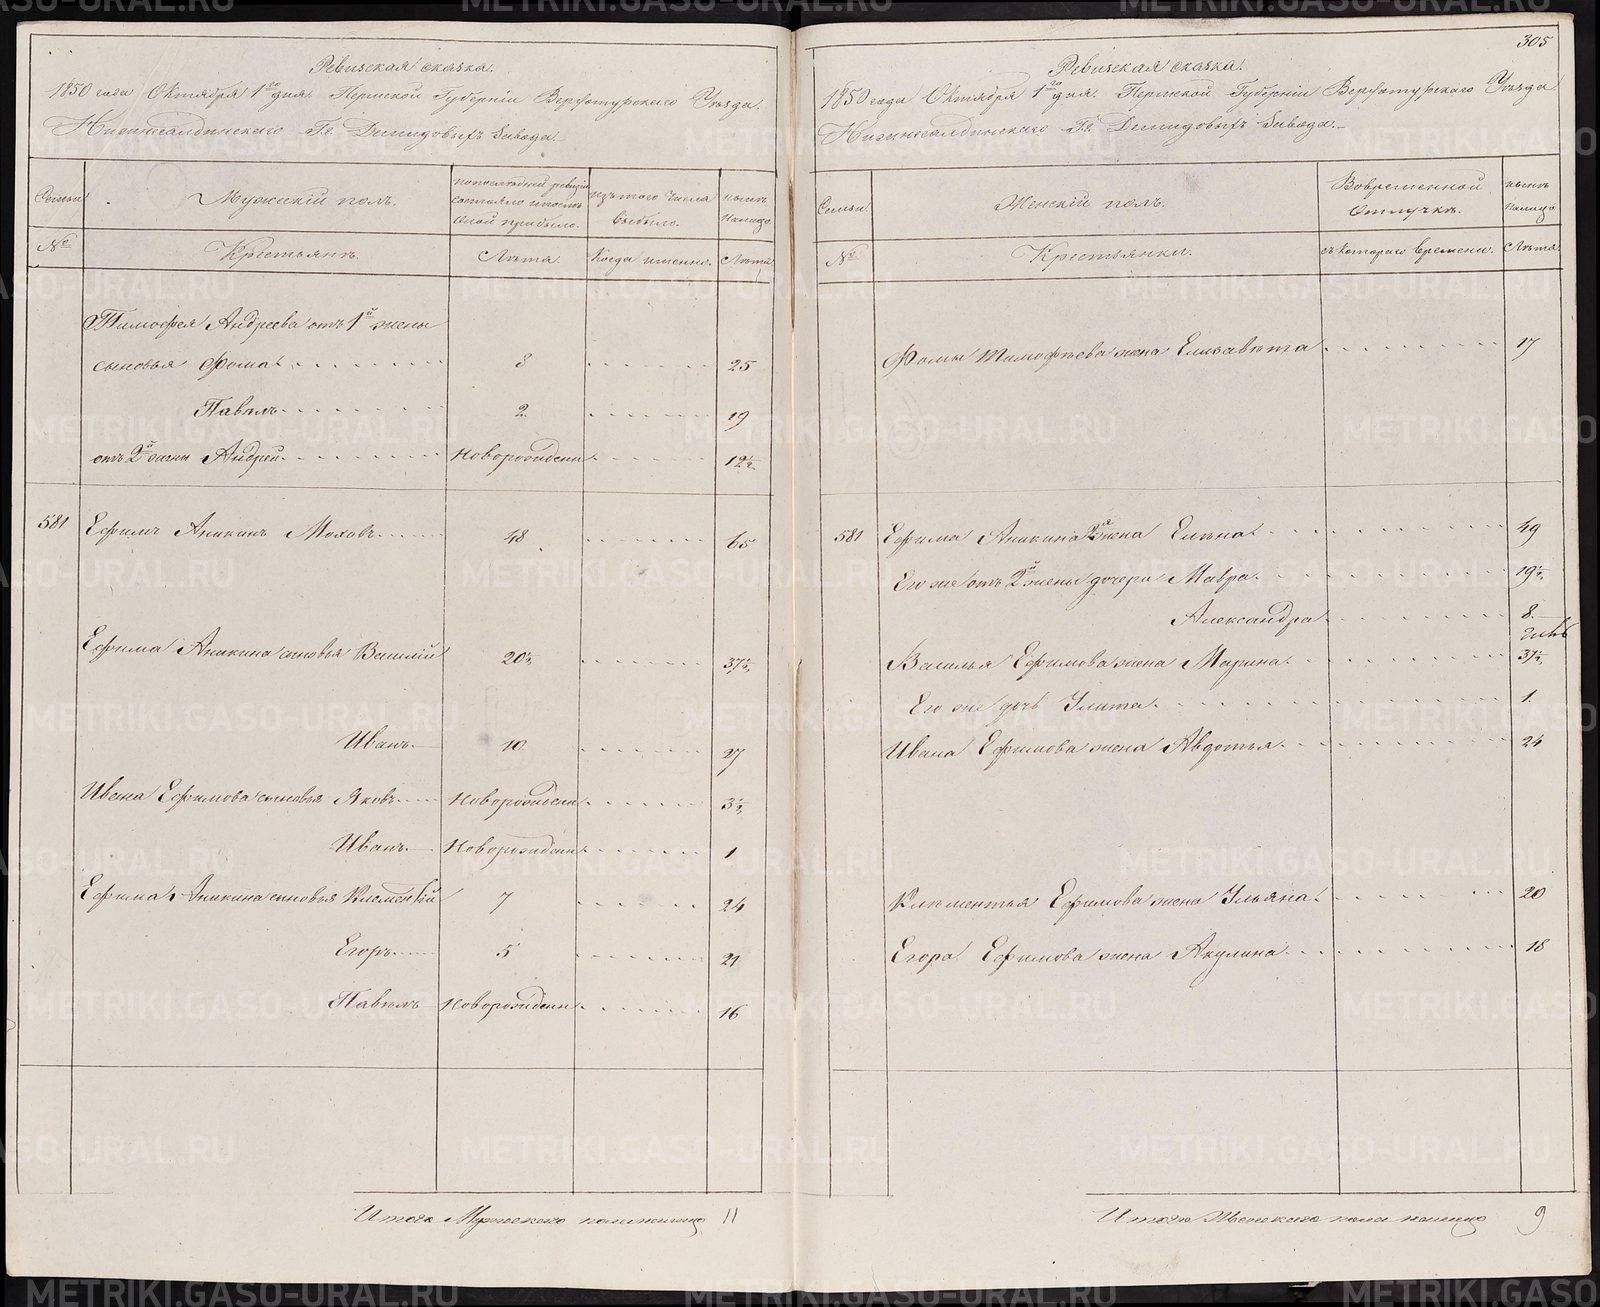 Ревизская сказка.
1850 года Октября 1го дня. Пермской Губерніи Верхотурскаго Уѣзда
Нижнесалдинскаго Гг. Демидовыхъ Завода.
Семьи
Мужскій полъ.
по последней ревизіи состояло и послѣ оной прибыло.
изъ того числа выбыло.
нынѣ налицо
№
Крестьянъ.
Лѣта.
Когда именно.
Лѣта
Тимофея Андреева отъ 1й жены
сыновья Фома 8 25
Павелъ 2 19
отъ 2й жены Андрей Новорожден 12½
581 Ефимъ Аникинъ Моховъ 48 65
Ефима Аникина сыновья Василій 20½ 37½
Иванъ 10 27
Ивана Ефимова сыновья Яковъ Новорожден 3½
Иванъ Новорожден 1
Ефима Аникина сыновья Климентій 7 24
Егоръ 5 21
Павелъ Новорожден 16
Итого Мужескаго пола налицо 11
305
Ревизская сказка.
1850 года Октября 1го дня. Пермской Губерніи Верхотурскаго Уѣзда
Нижнесалдинскаго Гг. Демидовыхъ Завода.
Семьи
Женскій полъ.
Во временной отлучкѣ.
нынѣ налицо
№
Крестьянки.
съ котораго времени.
Лѣта
Фомы Тимофѣева жена Елизавѣта 17
581 Ефима Аникина 2я жена Елѣна 49
Его же отъ 2й жены дочери Мавра 19½
Александра 8
Василья Ефимова жена Марина 37½
Его же дочь Улита 1
Ивана Ефимова жена Авдотья 24
Клѣментья Ефимова жена Ульяна 20
Егора Ефимова жена Акулина 18
Итого Женскаго пола налицо 9
METRIKI.GASO-URAL.RU